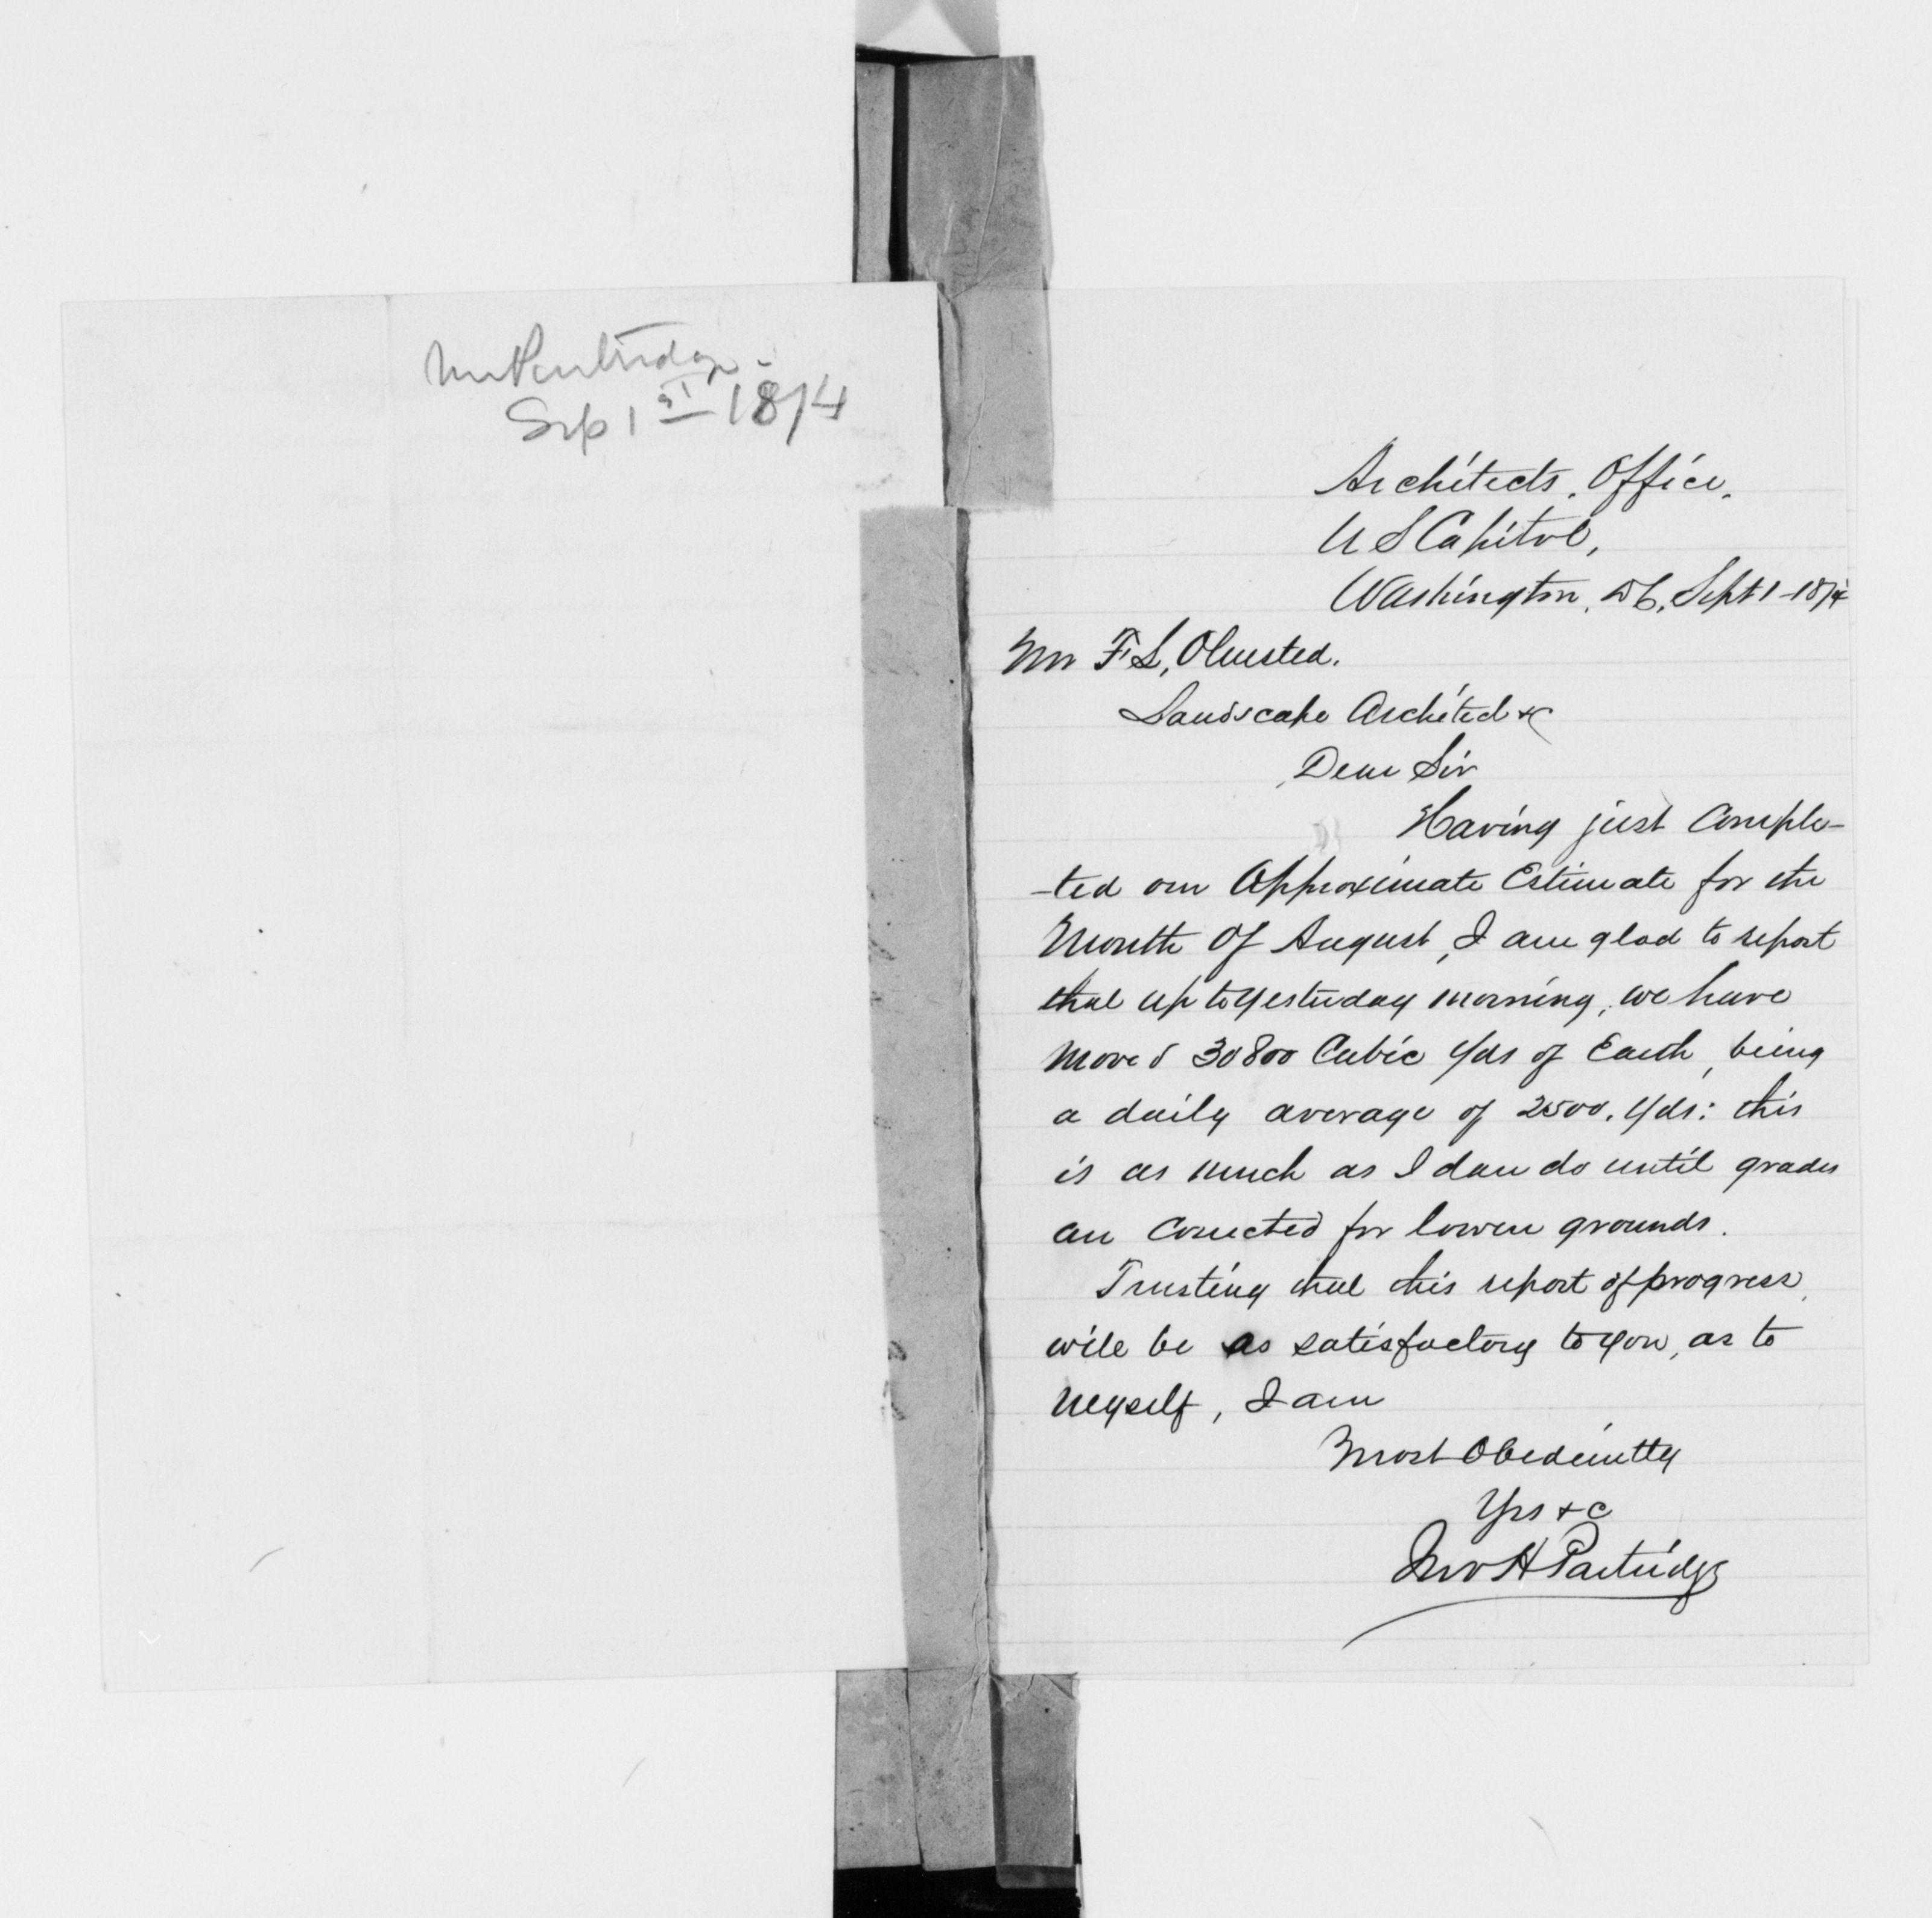 Mr Partridge.
Sep 1st 1874
Architects, Office,
U S Capitol,
Washington, DC, Sept 1-1874
Mr F. L, Olmsted.
Landscape Architect &c
Dear Sir
Having just Comple-
-ted our Approximate Estimate for the
Month Of August, I am glad to report
that up to yesterday morning, we have
moved 30800 Cubic Yds of Earth, being
a daily average of 2500, Yds: this
is as much as I can do until grades
are Corrected for lower grounds.
Trusting that this report of progress,
will be as satisfactory to you, as to
Myself, I am
Most Obediently
Yrs &c
Jno H Partridge